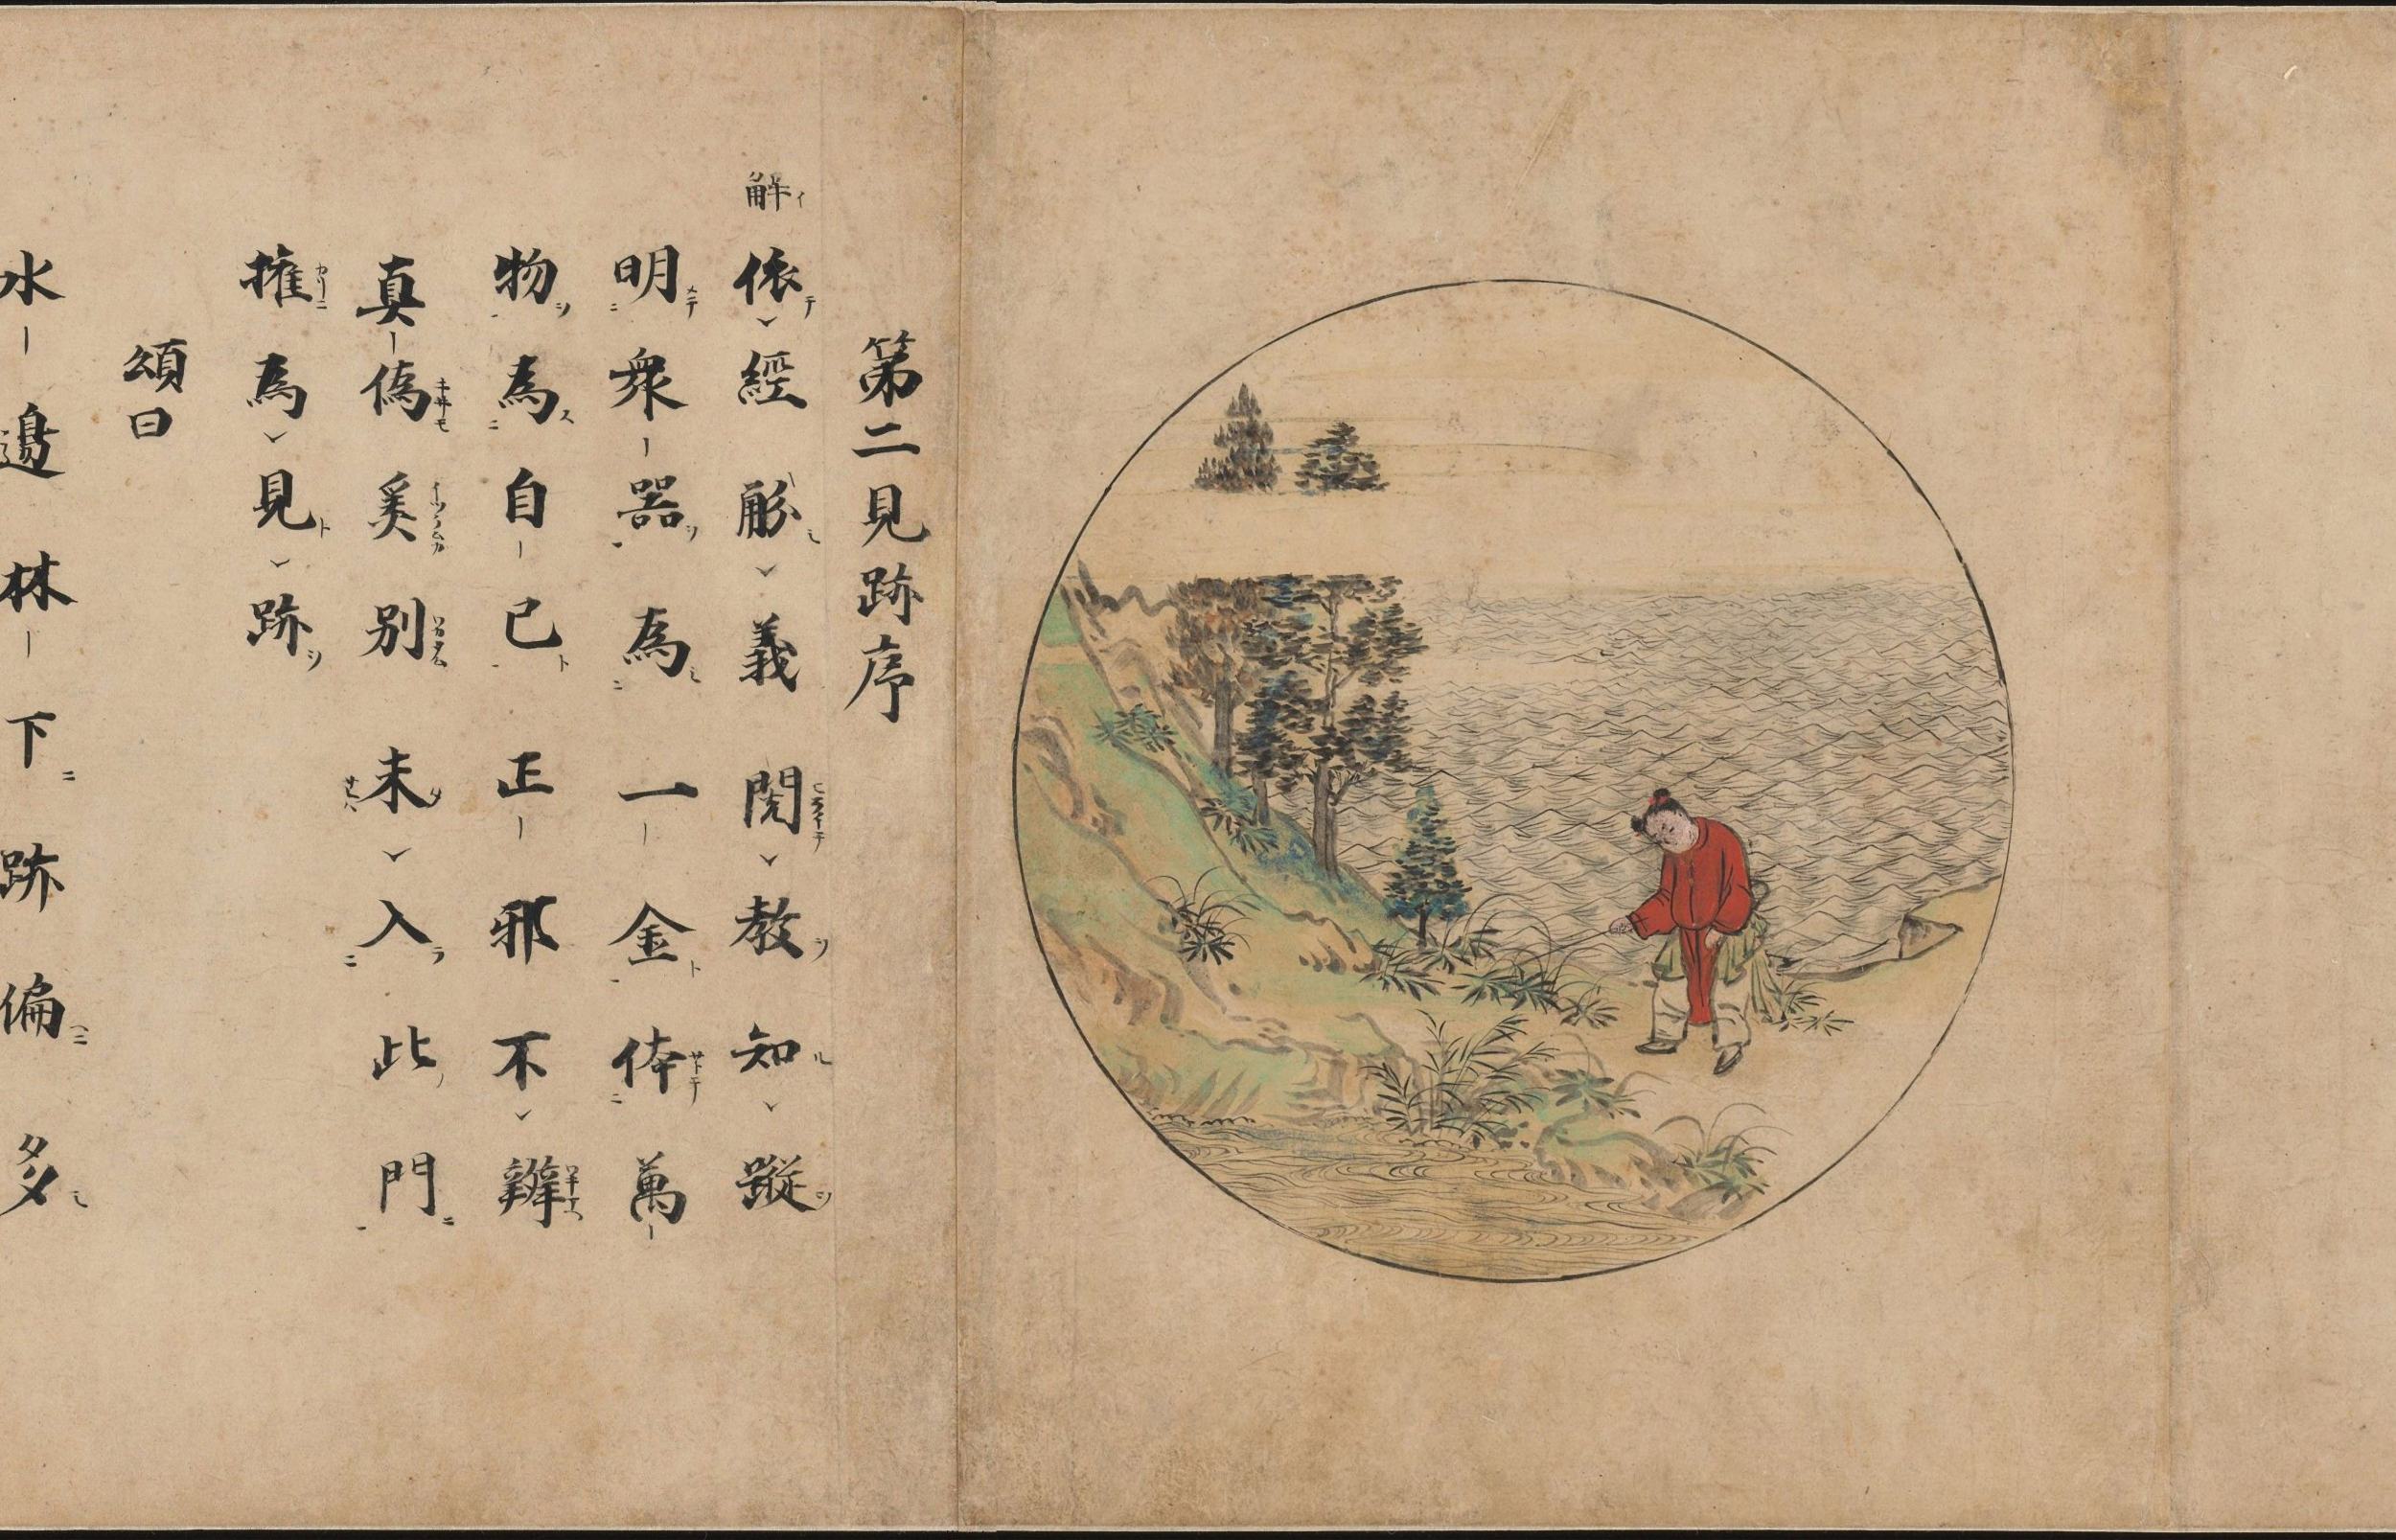 第二見跡序
解イ
依經觧義閲教知蹤
明衆器為一金体萬
物為自己正邪不辨
真偽奚別未入此門
權為見跡
頌曰
水邊林下跡偏多